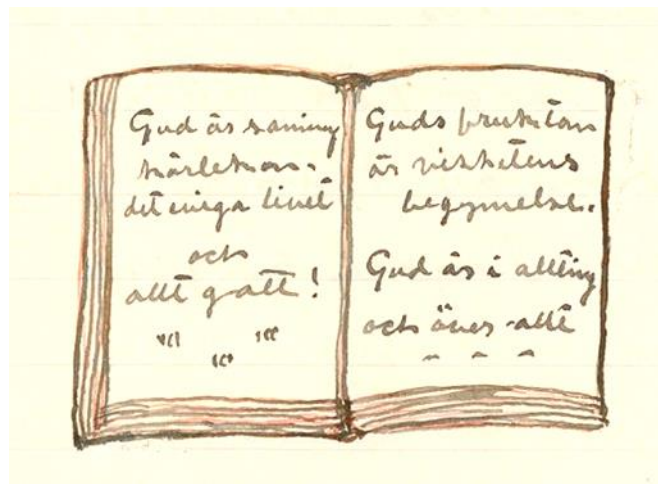 Gud är sanning
kärleken.
det eviga livet
och
allt gott!
Guds fruktan
är vishetens
begynnelse.
Gud är i allting
och över allt